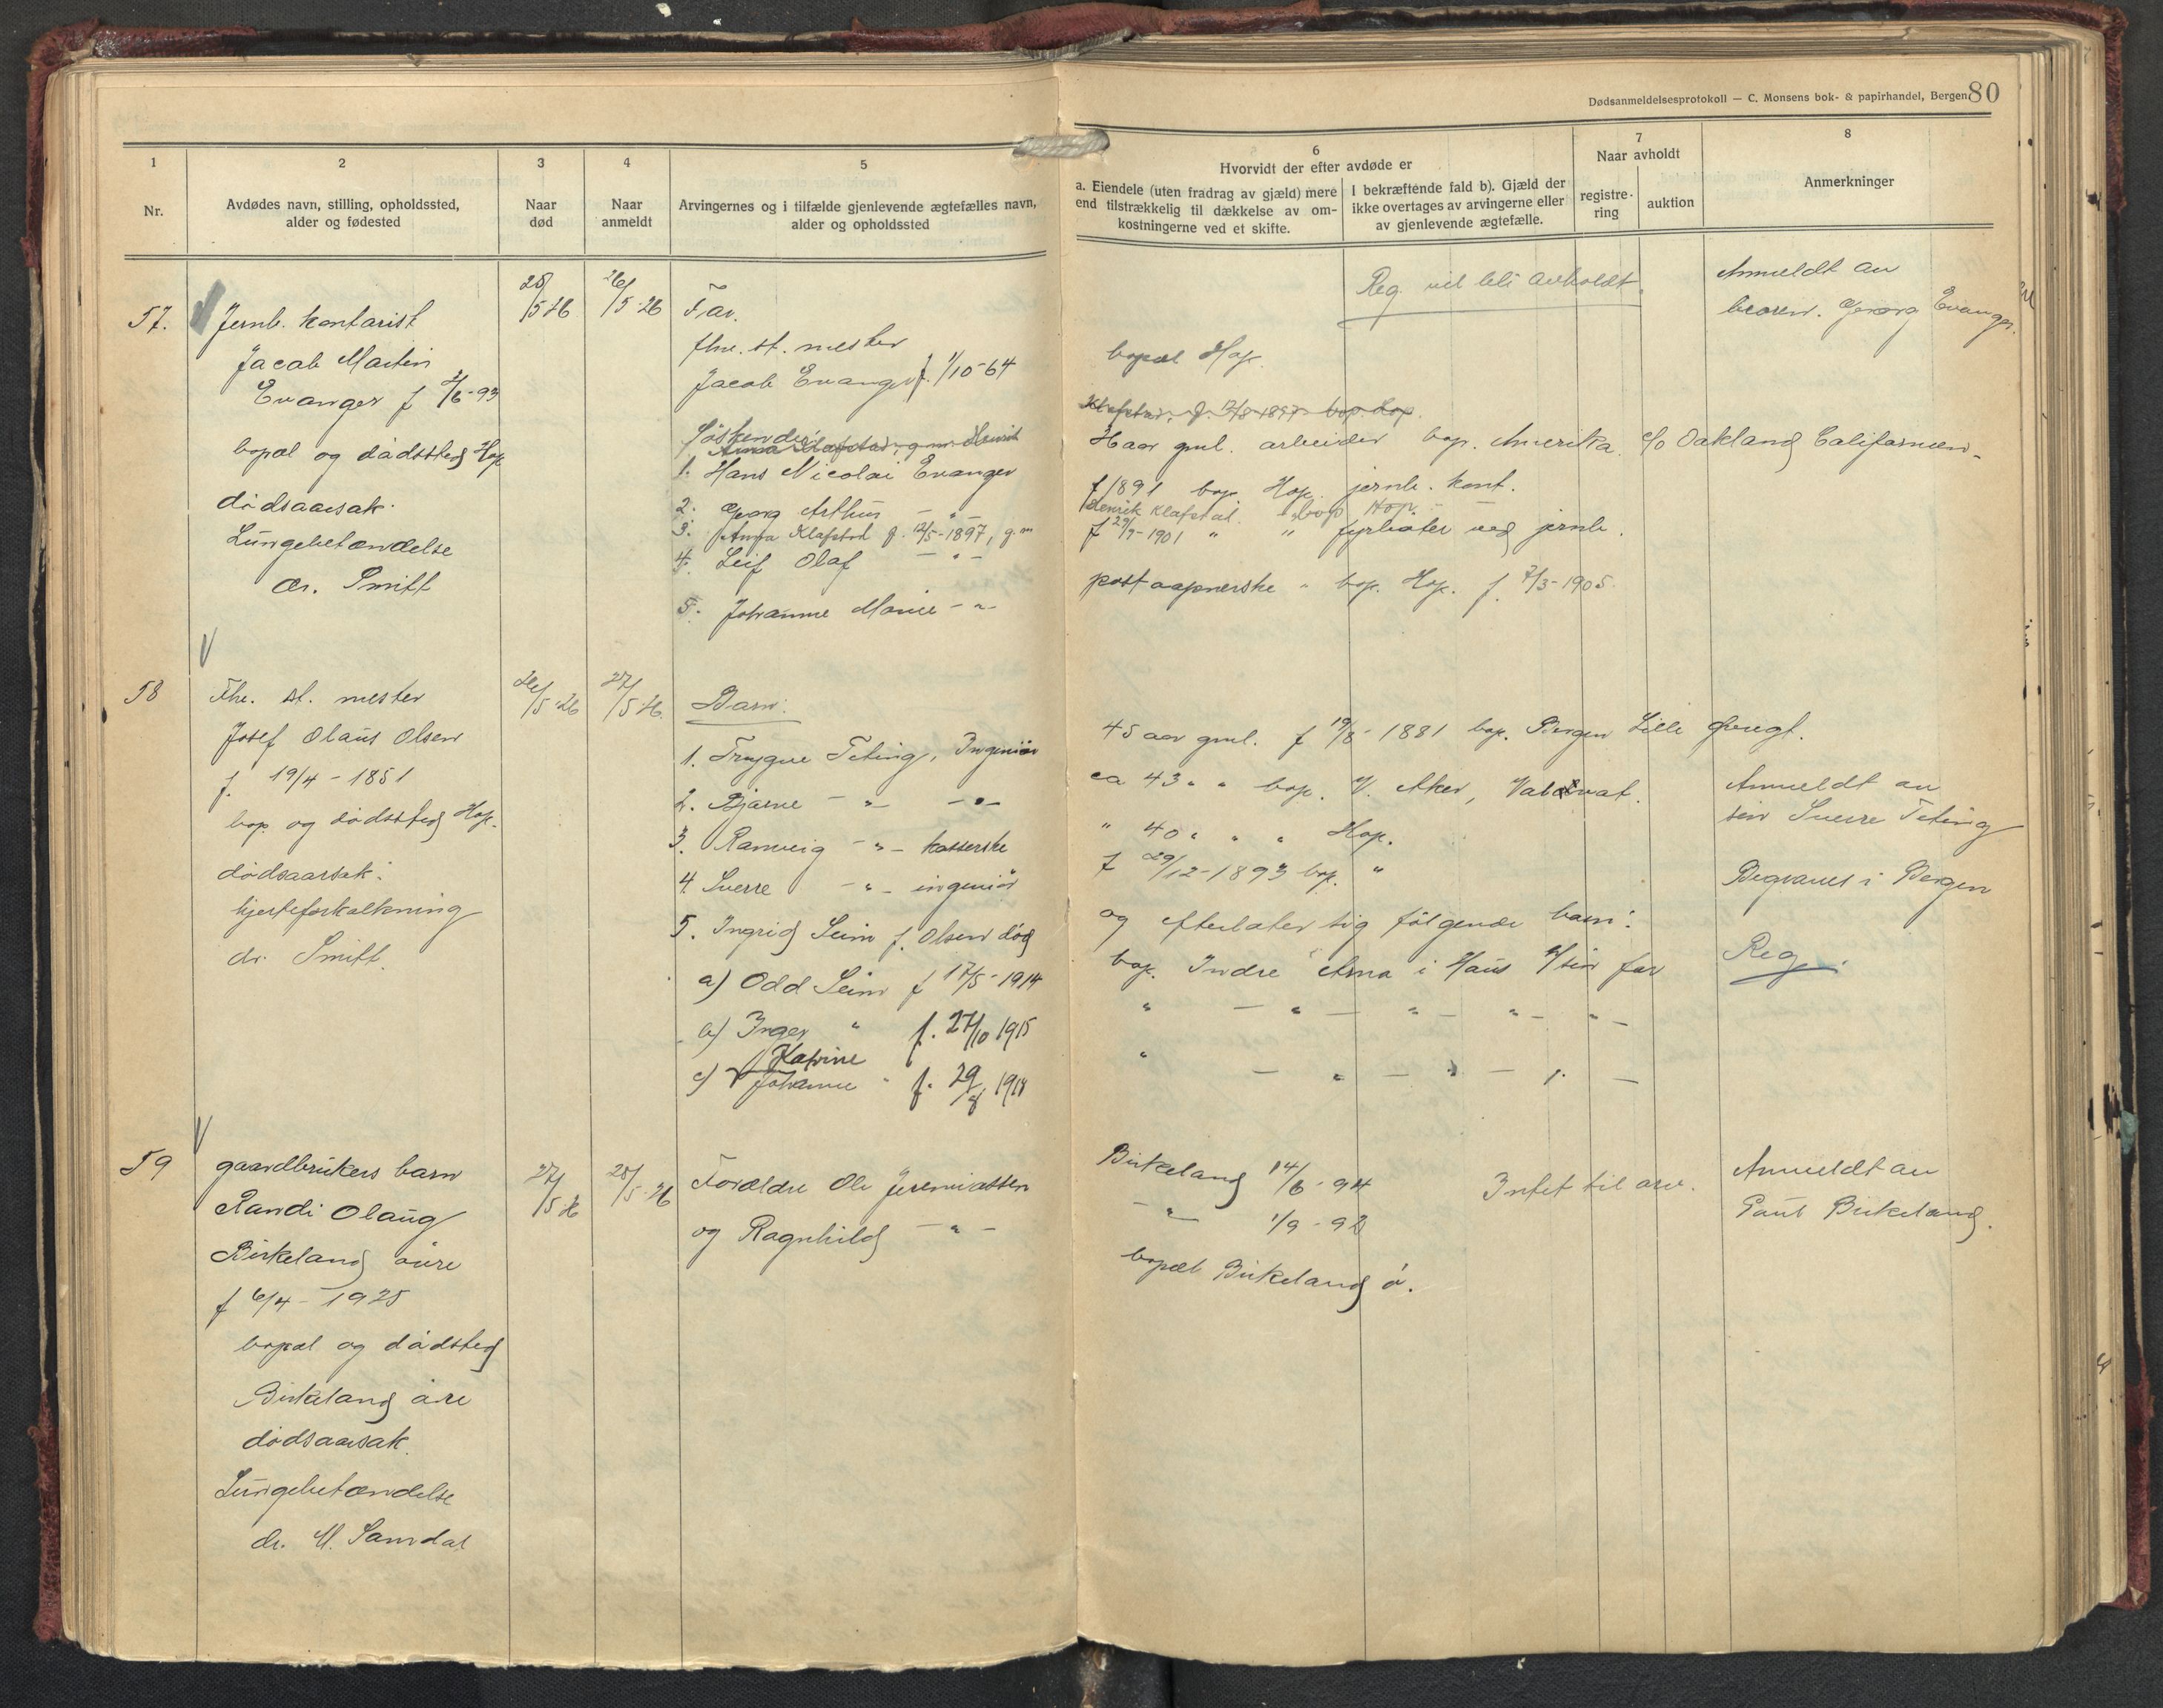 Dødsanmeldelsesprotokoll — C. Monsens bok- & papirhandel, Bergen 80
1
2
3
4
5
6
7
8
Nr.
Avdødes navn, stilling, opholdssted,
alder og fødested
Naar
død
Naar
anmeldt
Arvingernes og i tilfælde gjenlevende ægtefælles navn,
alder og opholdssted
Hvorvidt der efter avdøde er
a. Eiendele (uten fradrag av gjæld) mere
end tilstrækkelig til dækkelse av om-
kostningerne ved et skifte.
I bekræftende fald b). Gjæld der
ikke overtages av arvingerne eller
av gjenlevende ægtefælle.
Naar avholdt
registre-
ring
auktion
Anmerkninger
57.
Jernb. kontorist
Jacob Martin
Evanger f /6-93
bopæl og dödssted Hop
dödsaarsak.
Lungebetændelse
dr. Smitt
25/5 26
26/5-26
Far.
fhv. st. mester
Jacob Evanger f. 1/10-64
bopæl Hop.
Söskende:
Anna Klafstad, g.m. Henrik
Klafstad, f. 12/5 1897 bop. Hop.
1. Hans Nicolai Evanger
Haar gml. arbeider bop. Amerika c/o Oakland Californien.
2. Georg Arthur — " —
f 1891 bop. Hop. jernb. kont.
3. Anna Klafstad f. 12/5-1897, g.m.
Henrik Klafstad. bop Hop.
4. Leif Olaf — " —
f 29/7-1901 " " fyrböter ved jernb.
5. Johanne Marie — " —
postaapnerske " bop. Hop. f. 7/3-1905.
Reg. vil bli avholdt.
Anmeldt av
broren. Georg Evanger.
58
Fhv. st. mester
Josef Olaus Olsen
f. 19/4-1851
bop og dödssted Hop.
dödsaarsak:
hjerteforkalkning
dr. Smitt.
26/5-26
27/5-26.
Barn:
1. Trygve Teting, Ingeniör
45 aar gml. f 19/8-1881 bop. Bergen Lille Ögregt.
2. Bjarne — " — — " —
ca 43 " " bop. V. Aker,
3. Ranveig — " — kasserske
" 40 " " " Hop.
4. Sverre — " — ingeniör
f 29/12-1893 bop. "
5. Ingrid Seim f. Olsen död
og efterlater sig fölgende barn:
a) Odd Seim f 17/5-1914
bop. Indre Arna i Haus v/ sin far
b) Inger " f. 27/10 1915
" — " — " — " — " —
c) Katrine
Johanne " f. 29/8 1918
" — " — " — " —
Anmeldt av
sön Sverre Teting
Begraves i Bergen
Reg.
59
gaardbrukers barn
Randi Olaug
Birkeland övre
f 6/4-1925
bopæl og dödsted
Birkeland övre
dödsaarsak.
Lungebetændelse
dr. M. Samdal
27/5 26
28/5-26
Forældre Ole Jeremiassen
Birkeland 14/6-94
og Ragnhild — " —
— " — 1/9-92
bopæl Birkeland ö.
Intet til arv.
Anmeldt av
Paul Birkeland.